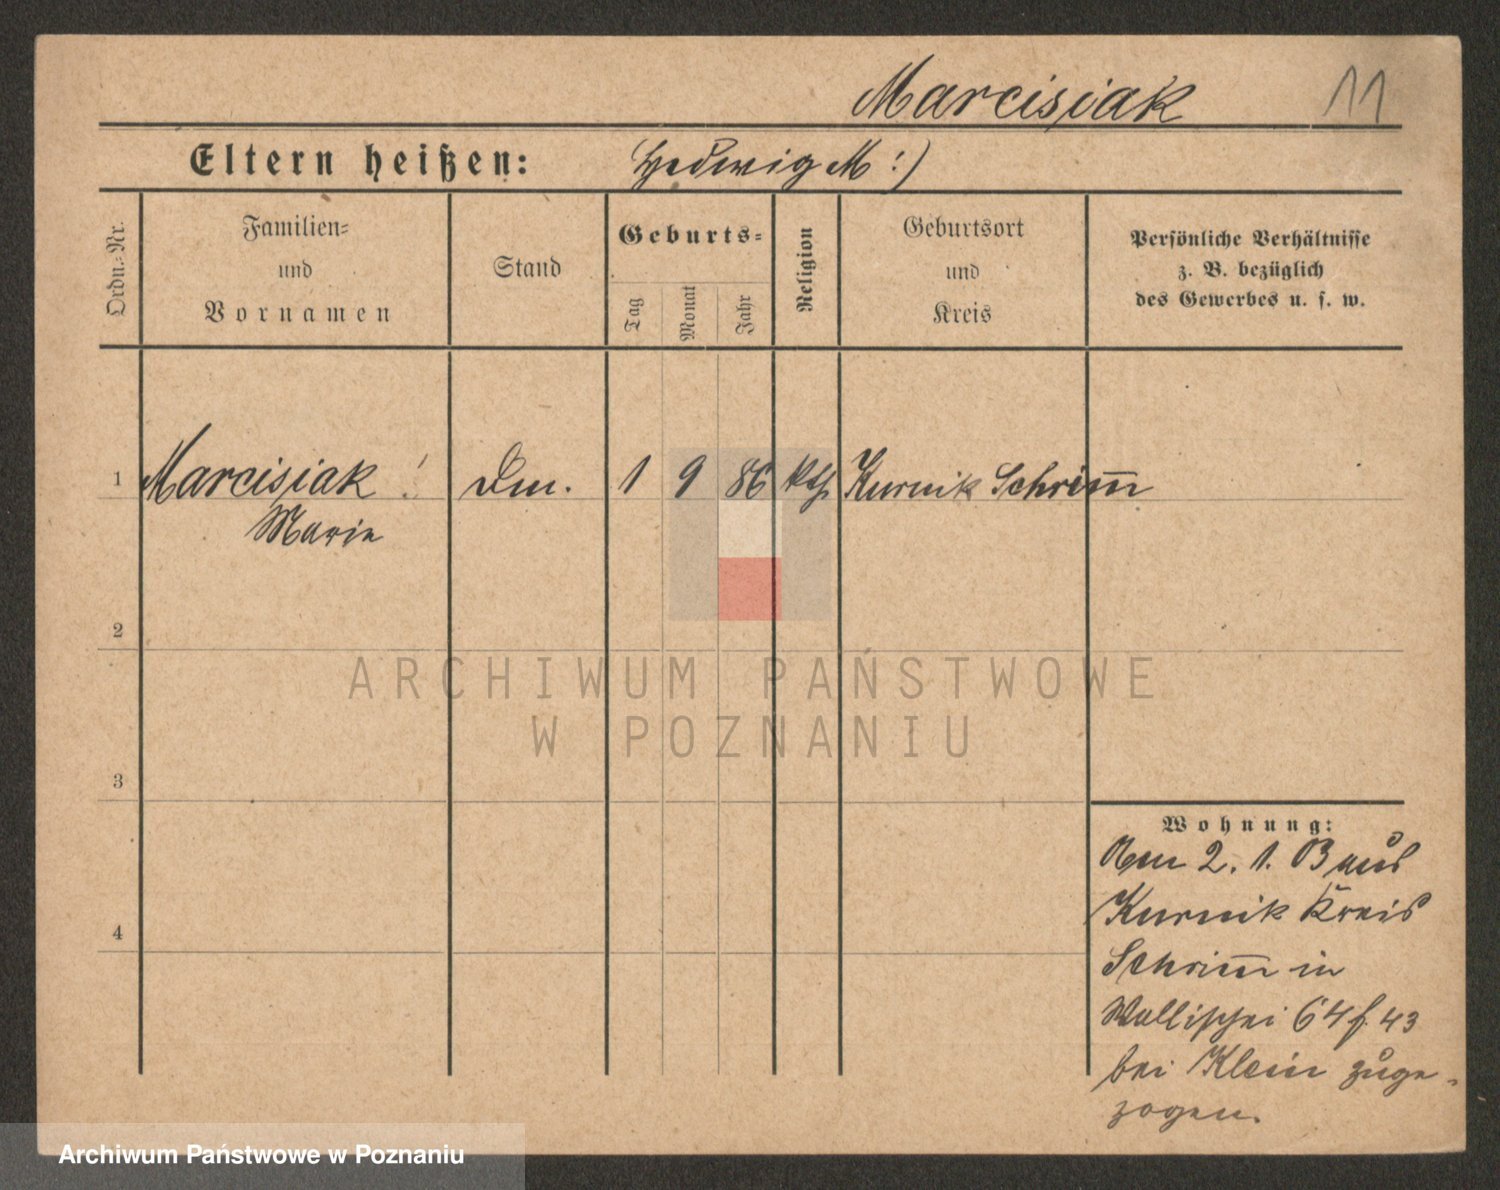 Marcisiak 11
Eltern heißen: Hedwig M :)
Ordn.-Nr.
Familien-
und
Vornamen
Stand
Geburts-
Tag
Monat
Jahr
Religion
Geburtsort
und
Kreis
Persönliche Verhältnisse
z. B. bezüglich
des Gewerbes u. s. w.
1 Marcisiak ! Dm. 1 9 86 kth Kurnik Schrim̅
Marie
2
3
4
Wohnung:
Am 2. 1. 03 aus
Kurnik Kreis
Schrim̅ in
Wallischei 64 f. 43
bei Klein zuge-
zogen.
ARCHIWUM PAŃSTWOWE
W POZNANIU
Archiwum Państwowe w Poznaniu